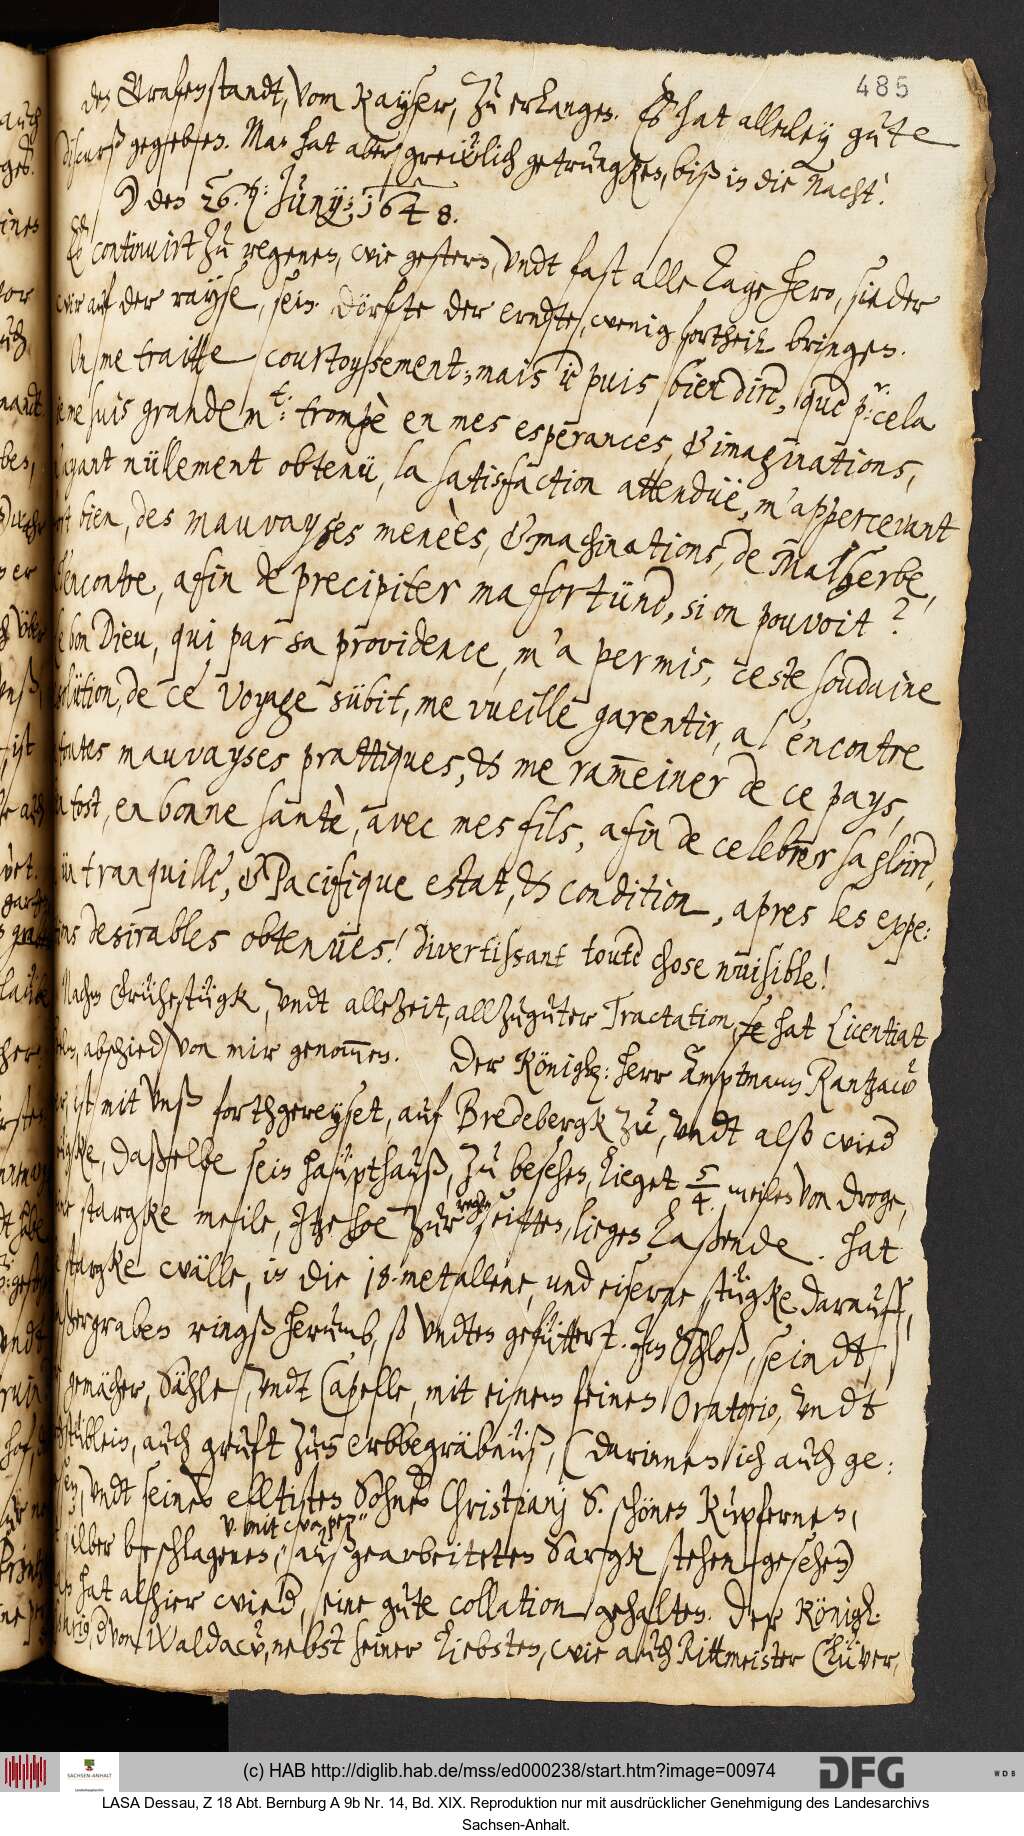 485
den Grafenstandt, vom Kayser, zu erlangen. Es hat allerley gute
Discurß gegeben. Man hat aber grewlich getrungken, biß in die Nacht.
☽ den 26.ten: Junij: 1648.
Es continuirt zu regenen, wie gestern, vndt fast alle tage hero, sieder
wir auf der rayse, sein. dörfte der erndte, wenig vortheil bringen.
On me traitte courtoysement, mais ie puis bien dire, que p.r cela
ie me suis grandem.t: trompè en mes esperances, & imaginations,
n'ayant nüllement obtenü, la satisfaction attendüe, m'appercevant
bien, des mauvayses menèes, & machinations, de Malherbe,
a l'encontre, afin de precipiter ma fortüne, si on pouvoit?
Le bon Dieu, qui par sa providence, m'a permis, ceste soudaine
resolütion, de ce voyage sübit, me vueille garentir, a l'encontre
toutes mauvayses prattiques, & me rameiner de ce pays,
tost, en bonne santè, avec mes fils, afin de celebrer sa gloire,
en tranquille, & Pacifique estat, & condition, apres les expe:
ditions desirables obtenües! divertissant toute chose nuisible!
Nachm Frühestügk, vndt allezeit, allzuguter Tractation, hat Licentiat
abschied von mir genommen. Der Königl: herr Amptmann Rantzaw
ist mit vnß forthgereyset, auf Bredebergk zu, vndt alß wird
daßelbe sein haüpthauß, zu besehen, lieget 5/4. meilen von droge,
eine stargke meile, Itzehoe zur rechten seitten, liegen laßende. hat
stargke wälle, in die 18. metallene, und eiserne stügke darauff,
Waßergraben ringß herumb, so vndten gefüttert. Im Schloß, seindt
gemächer, Sähle, vndt Capelle, mit einem feinen Oratorio, vndt
stüblein, auch gruft zum erbbegräbnüß, (darinnen ich auch ge:
vndt seines elltisten Sohnes Christiani S. schönen Kupfernen,
v. mit wapen
silber beschlagenen, außgearbeiteten Sargk stehen gesehen)
Man hat alhier wied, eine gute collation gehalten. Der Königl:
von Waldaw, nebst seiner liebsten, wie auch Rittmeister Clüver,
(c) HAB http://diglib.hab.de/mss/ed000238/start.htm?image=00974
SACHSEN-ANHALT
DFG
WDB
LASA Dessau, Z 18 Abt. Bernburg A 9b Nr. 14, Bd. XIX. Reproduktion nur mit ausdrücklicher Genehmigung des Landesarchivs
Sachsen-Anhalt.